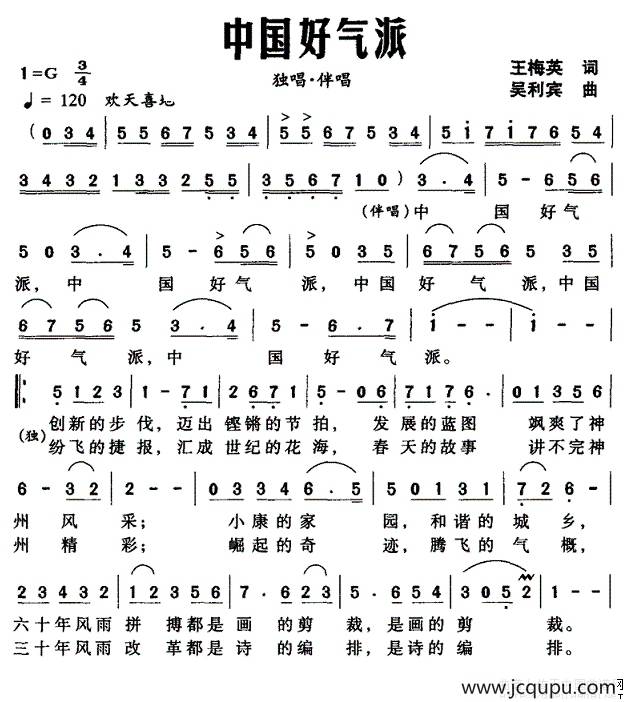 中国好气派
1=G 3/4 独唱·伴唱 王梅英 词
♩= 120 欢天喜地 吴利宾 曲
( 0 3 4 | 5 5 6 7 5 3 4 | 5 5 6 7 5 3 4 | 5 1 7 1 7 6 5 4 |
3 4 3 2 1 3 3 2 5 5 | 3 5 6 7 1 0 ) 3 . 4 | 5 - 6 5 6 |
(伴唱)中 国 好 气
5 0 3 . 4 | 5 - 6 5 6 | 5 0 3 5 | 6 7 5 6 5 3 5 |
派, 中 国 好 气 派, 中国 好 气 派, 中国
6 7 5 6 5 3 . 4 | 5 6 . 7 | 1 - - | 1 - - |
好 气 派, 中 国 好 气 派。
5 1 2 3 | 1 - 7 1 | 2 6 7 1 | 5 - 0 6 | 7 1 7 6 . | 0 1 3 5 6 |
(独) 创新的步 伐, 迈出 铿锵的节 拍, 发 展的蓝图 飒爽了神
纷飞的捷 报, 汇成 世纪的花 海, 春 天的故事 讲不完神
6 - 3 2 | 2 - - | 0 3 4 3 3 6 . 5 | 5 0 1 3 1 | 7 2 6 - |
州 风 采; 小康的家 园, 和谐的 城 乡,
州 精 彩; 崛起的奇 迹, 腾飞的 气 概,
2 3 4 3 2 | 1 2 3 5 6 | 7 . 6 2 3 | 5 . 6 5 4 | 3 0 5 2 | 1 - - |
六十年风雨 拼 搏都是 画 的剪 裁, 是画的 剪 裁。
三十年风雨 改 革都是 诗 的编 排, 是诗的 编 排。
www.jcqupu.com